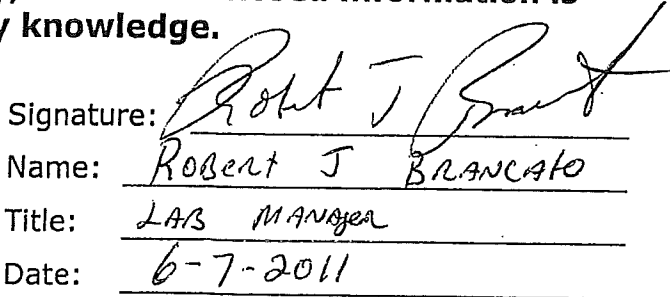 information is
y knowledge.
Signature: Robert J Brancato
Name: ROBERT J BRANCATO
Title: LAB MANAGER
Date: 6-7-2011